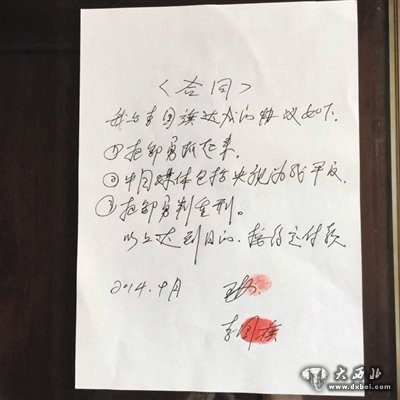 《合同》
我与李国旗达成的协议如下.
①把郭勇抓起来.
②中国媒体包括央视为我平反.
③把郭勇判重刑.
以上达到目的.按约定付款
2014.9月
李国旗
大西北
www.dxbei.com